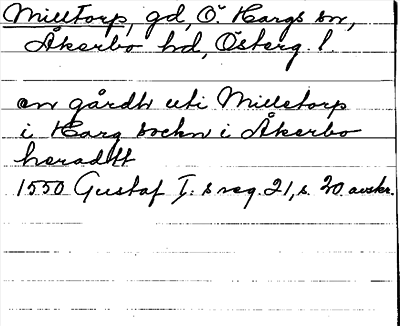 Milltorp, gd, Ö. Hargs sn,
Åkerbo hd, Österg. l
en gårdh uti Milletorp
i Harg sockn i Åkerbo
heradtt
1550 Gustaf I:s reg. 21, s. 20. avskr.